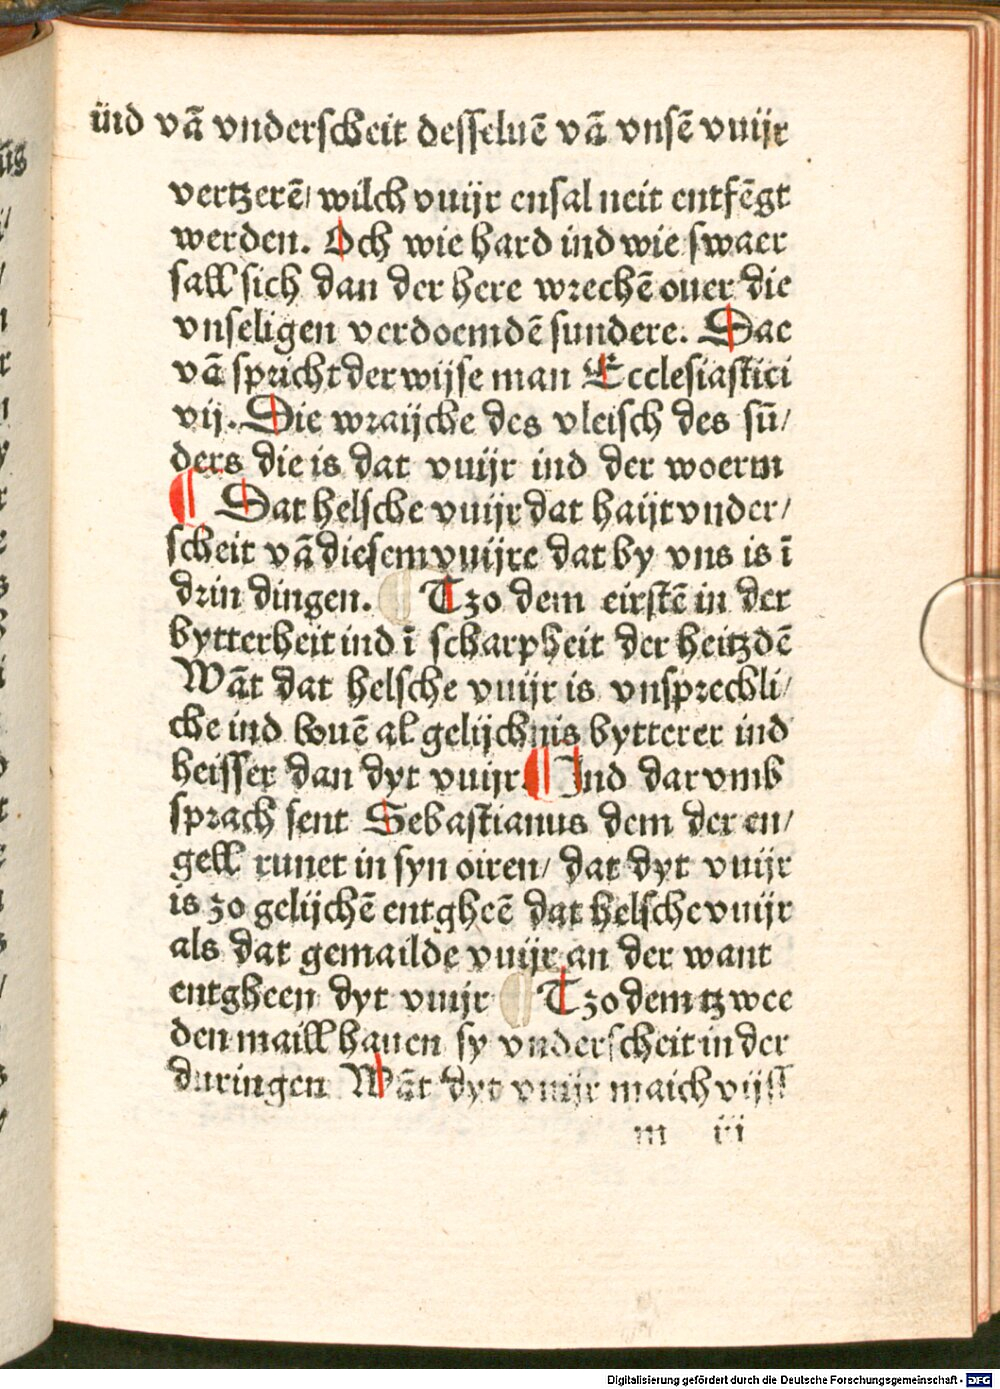 ind vā vnderscheit desseluē vā vnsē vuijr
vertzerē/ wilch vuijr ensal neit entfēgt
werden. Och wie hard ind wie swaer
sall sich dan der here wrechē ouer die
vnseligen verdoemdē sundere. Dae
vā spricht der wijse man Ecclesiastici
vij. Die wraijche des vleisch des sū/
ders die is dat vuijr ind der woerm
¶ Dat helsche vuijr dat haijt vnder/
scheit vā diesem vuijre dat by vns is ī
drin dingen. ¶ Tzo dem eirstē in der
bytterheit ind ī scharpheit der heitzdē
Wāt dat helsche vuijr is vnsprechli/
che ind bouē al gelijchnis bytterer ind
heisser dan dyt vuijr ¶ Ind darvmb
sprach sent Sebastianus dem der en/
gell runet in syn oiren/ dat dyt vuijr
is zo gelijchē entgheē dat helsche vuijr
als dat gemailde vuijr an der want
entgheen dyt vuijr ¶ Tzo dem tzwee
den maill hauen sy vnderscheit in der
duringen Wāt dyt vuijr maich vijss
m iii
Digitalisierung gefördert durch die Deutsche Forschungsgemeinschaft - DFG